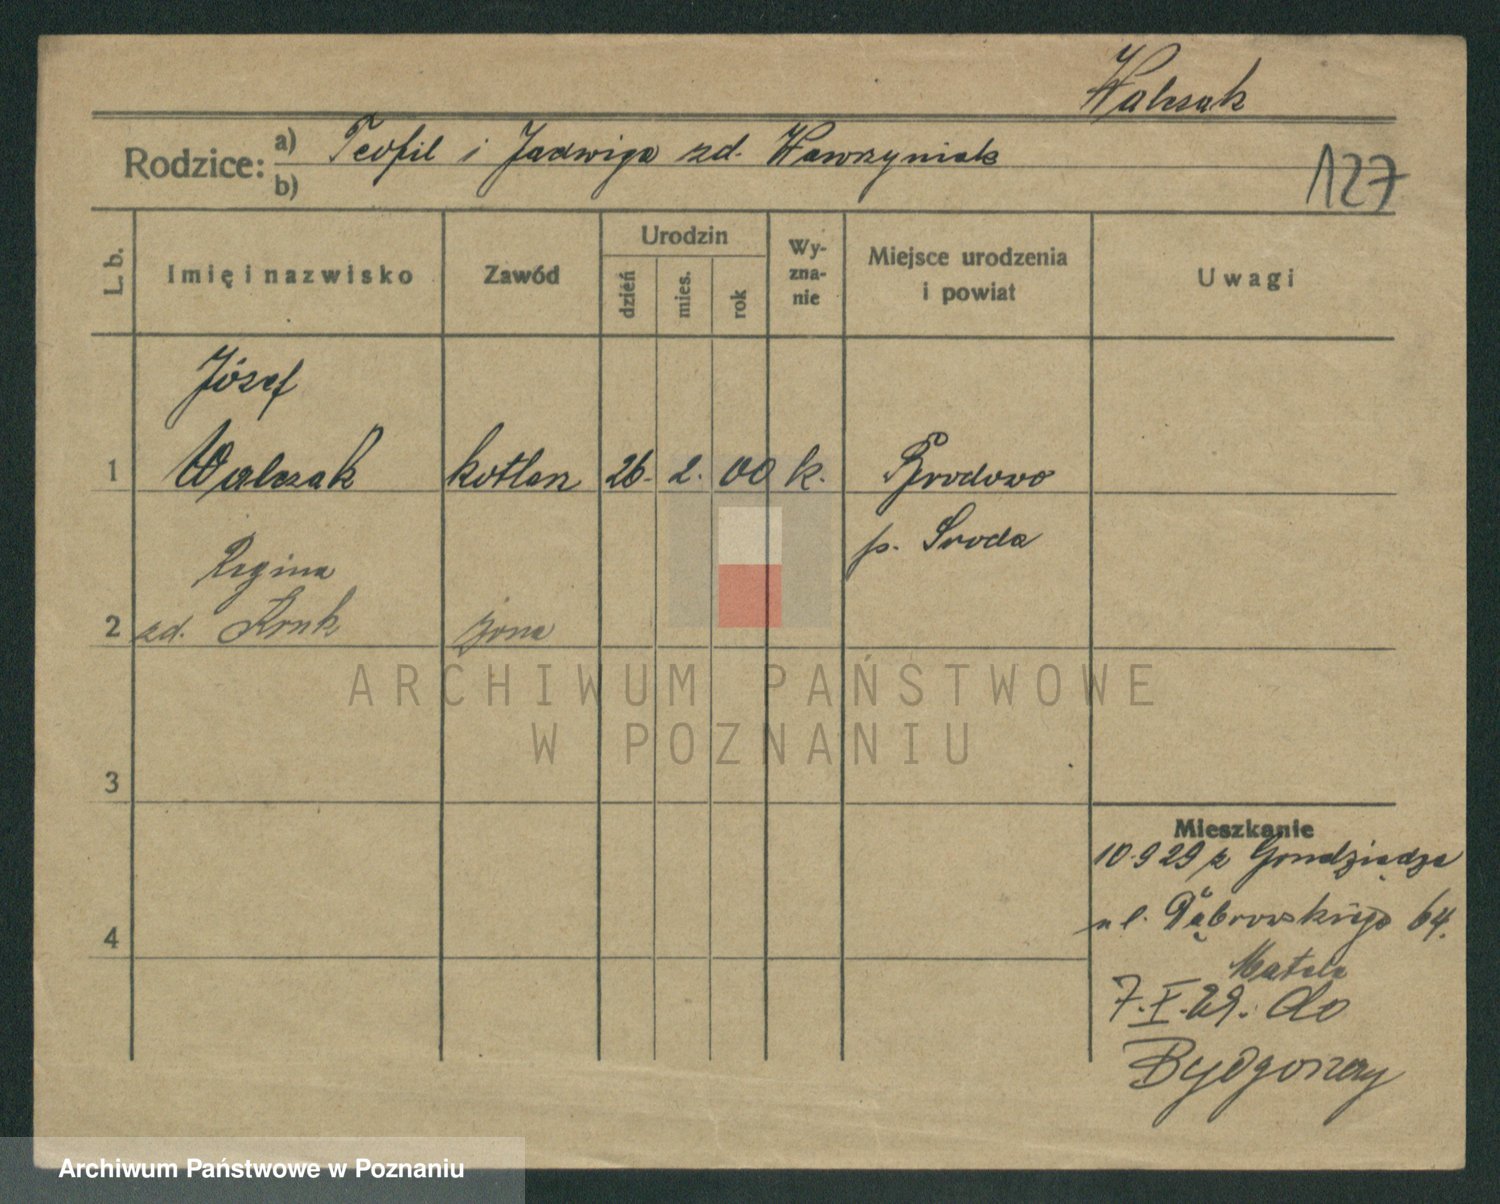 Walczak
Rodzice: a) Teofil i Jadwiga zd. Wawrzyniak
b)
127
L. b.
Imię i nazwisko
Zawód
Urodzin
dzień
mies.
rok
Wy-
zna-
nie
Miejsce urodzenia
i powiat
Uwagi
Józef
1 Walczak kotlarz 26. 2. 00 k. Brodowo
p. Sroda
Regina
2 zd. Kruk żona
ARCHIWUM PAŃSTWOWE
W POZNANIU
3
Mieszkanie
10.9 29 z Grudziądza
ul. Dąbrowskiego 64.
4
7.X.29. do
Bydgoszczy
Archiwum Państwowe w Poznaniu